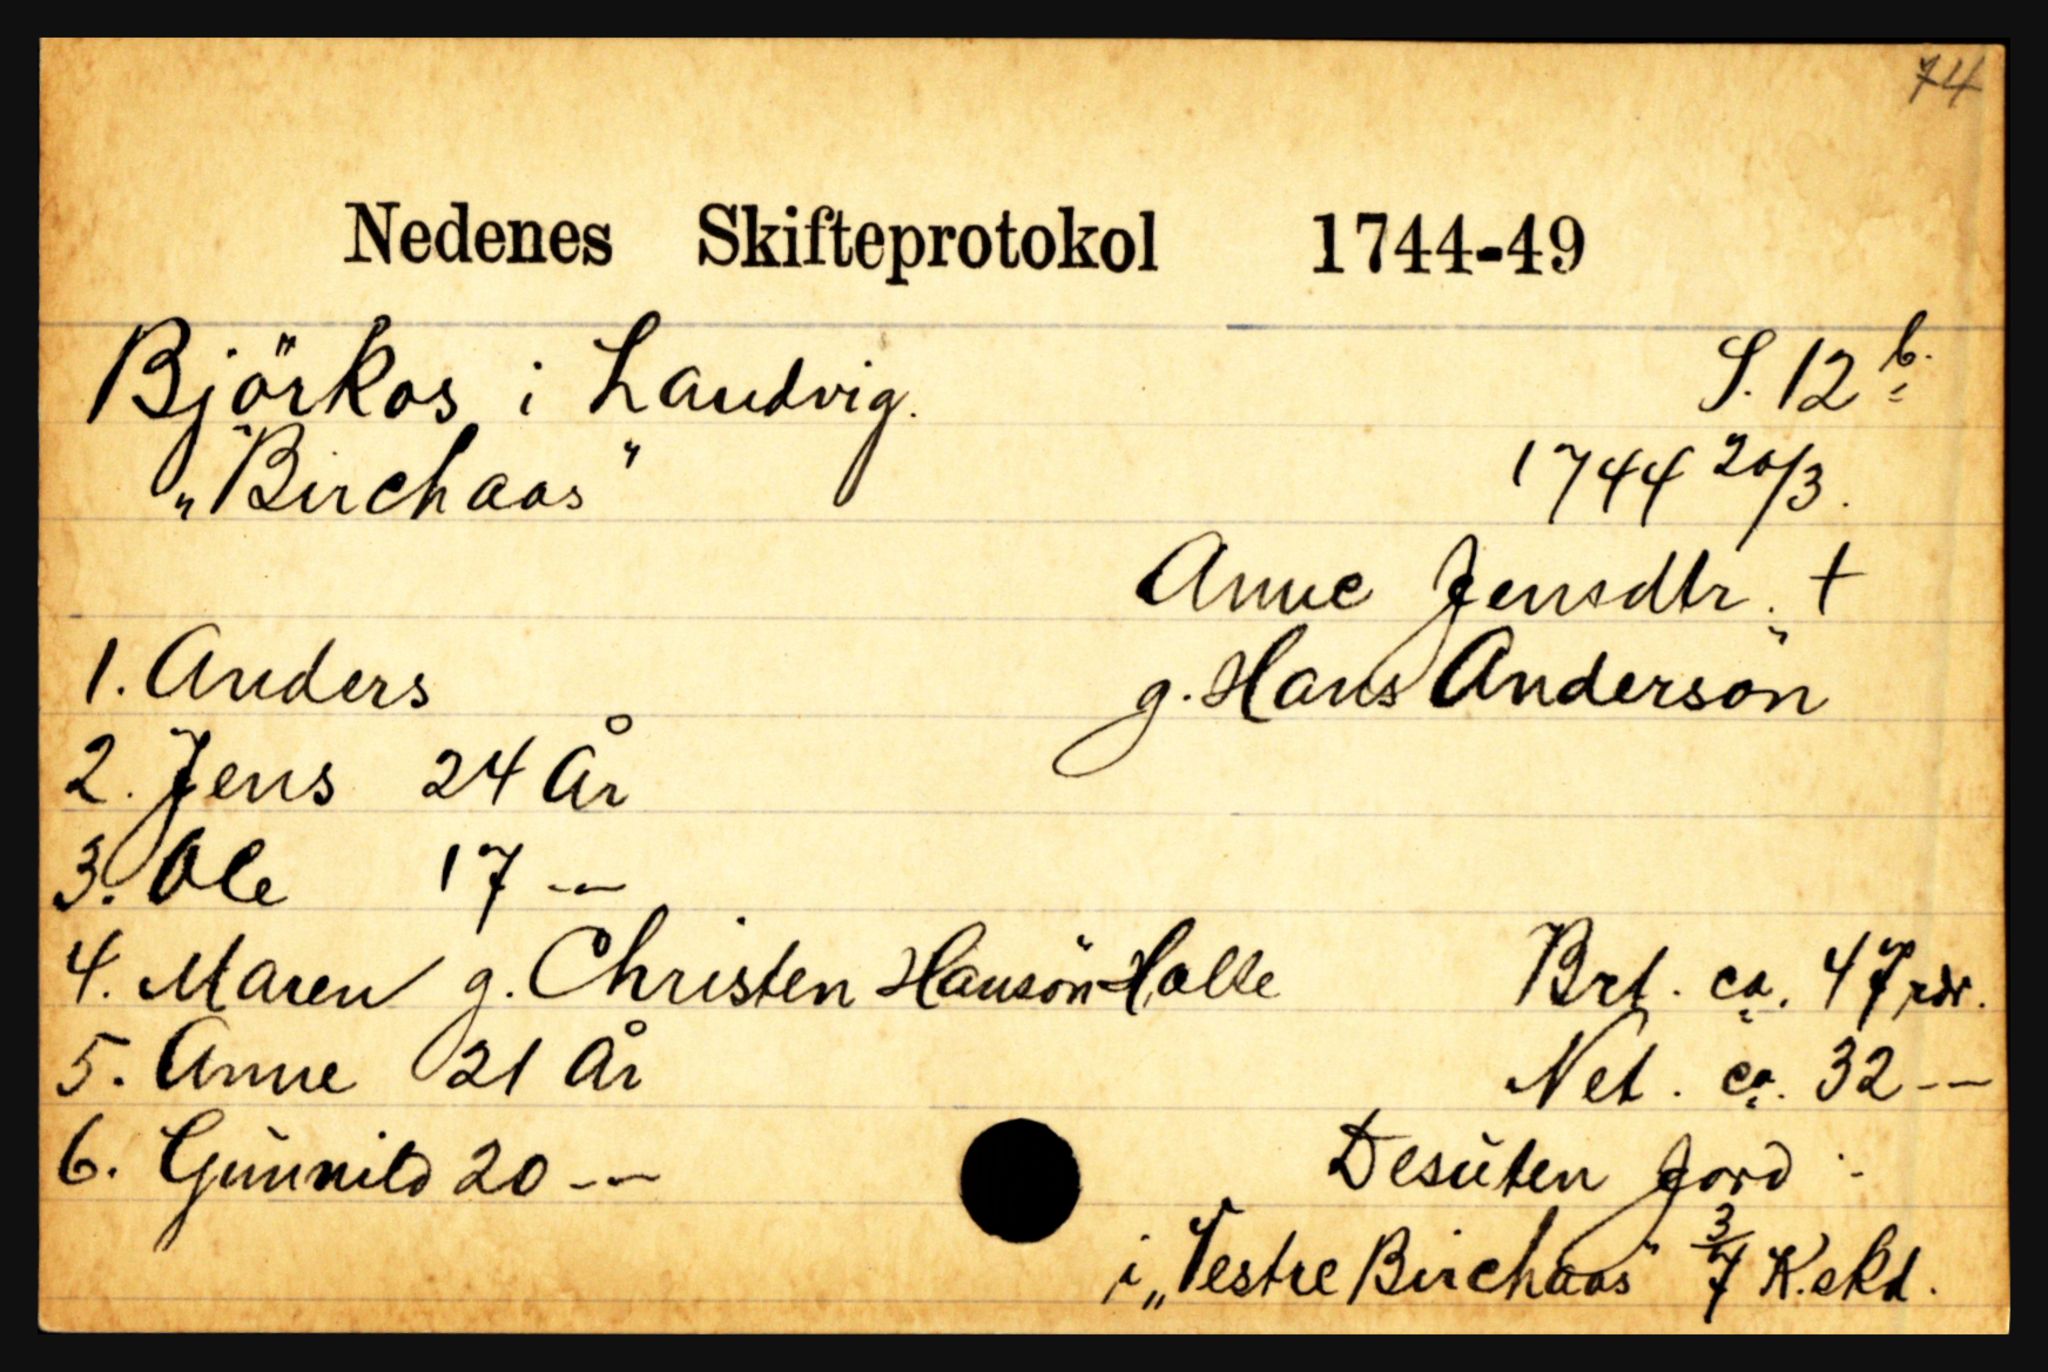 74
Nedenes Skifteprotokol 1744-49
Björkos i Landvig. S. 12 b.
"Birchaas" 1744 20/3.
Anne Jensdtr. †
1. Anders g. Hans Andersön
2. Jens 24 År
3. Ole 17 -–
4. Maren g. Christen Hansön Holte Brt. ca. 47 rdr.
5. Anne 21 År Net. ca. 32 -–
6. Gunnild 20 -–
Desuten Jord :-
i "Vestre Birchaas" 3/7 K.skd.